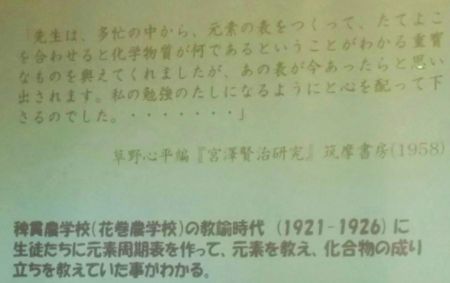 「先生は、多忙の中から、元素の表をつくって、たてよこ
を合わせると化学物質が何であるということがわかる重寶
なものを與えてくれましたが、あの表が今あったらと思い
出されます。私の勉強のたしになるようにと心を配って下
さるのでした。・・・・・・・」
草野心平編『宮澤賢治研究』筑摩書房(1958)
稗貫農学校(花巻農学校)の教諭時代 (1921-1926) に
生徒たちに元素周期表を作って、元素を教え、化合物の成り
立ちを教えていた事がわかる。